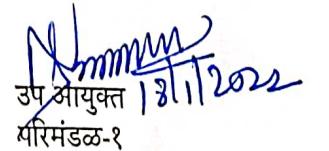 उप आयुक्त 18/1/2022
परिमंडळ-१